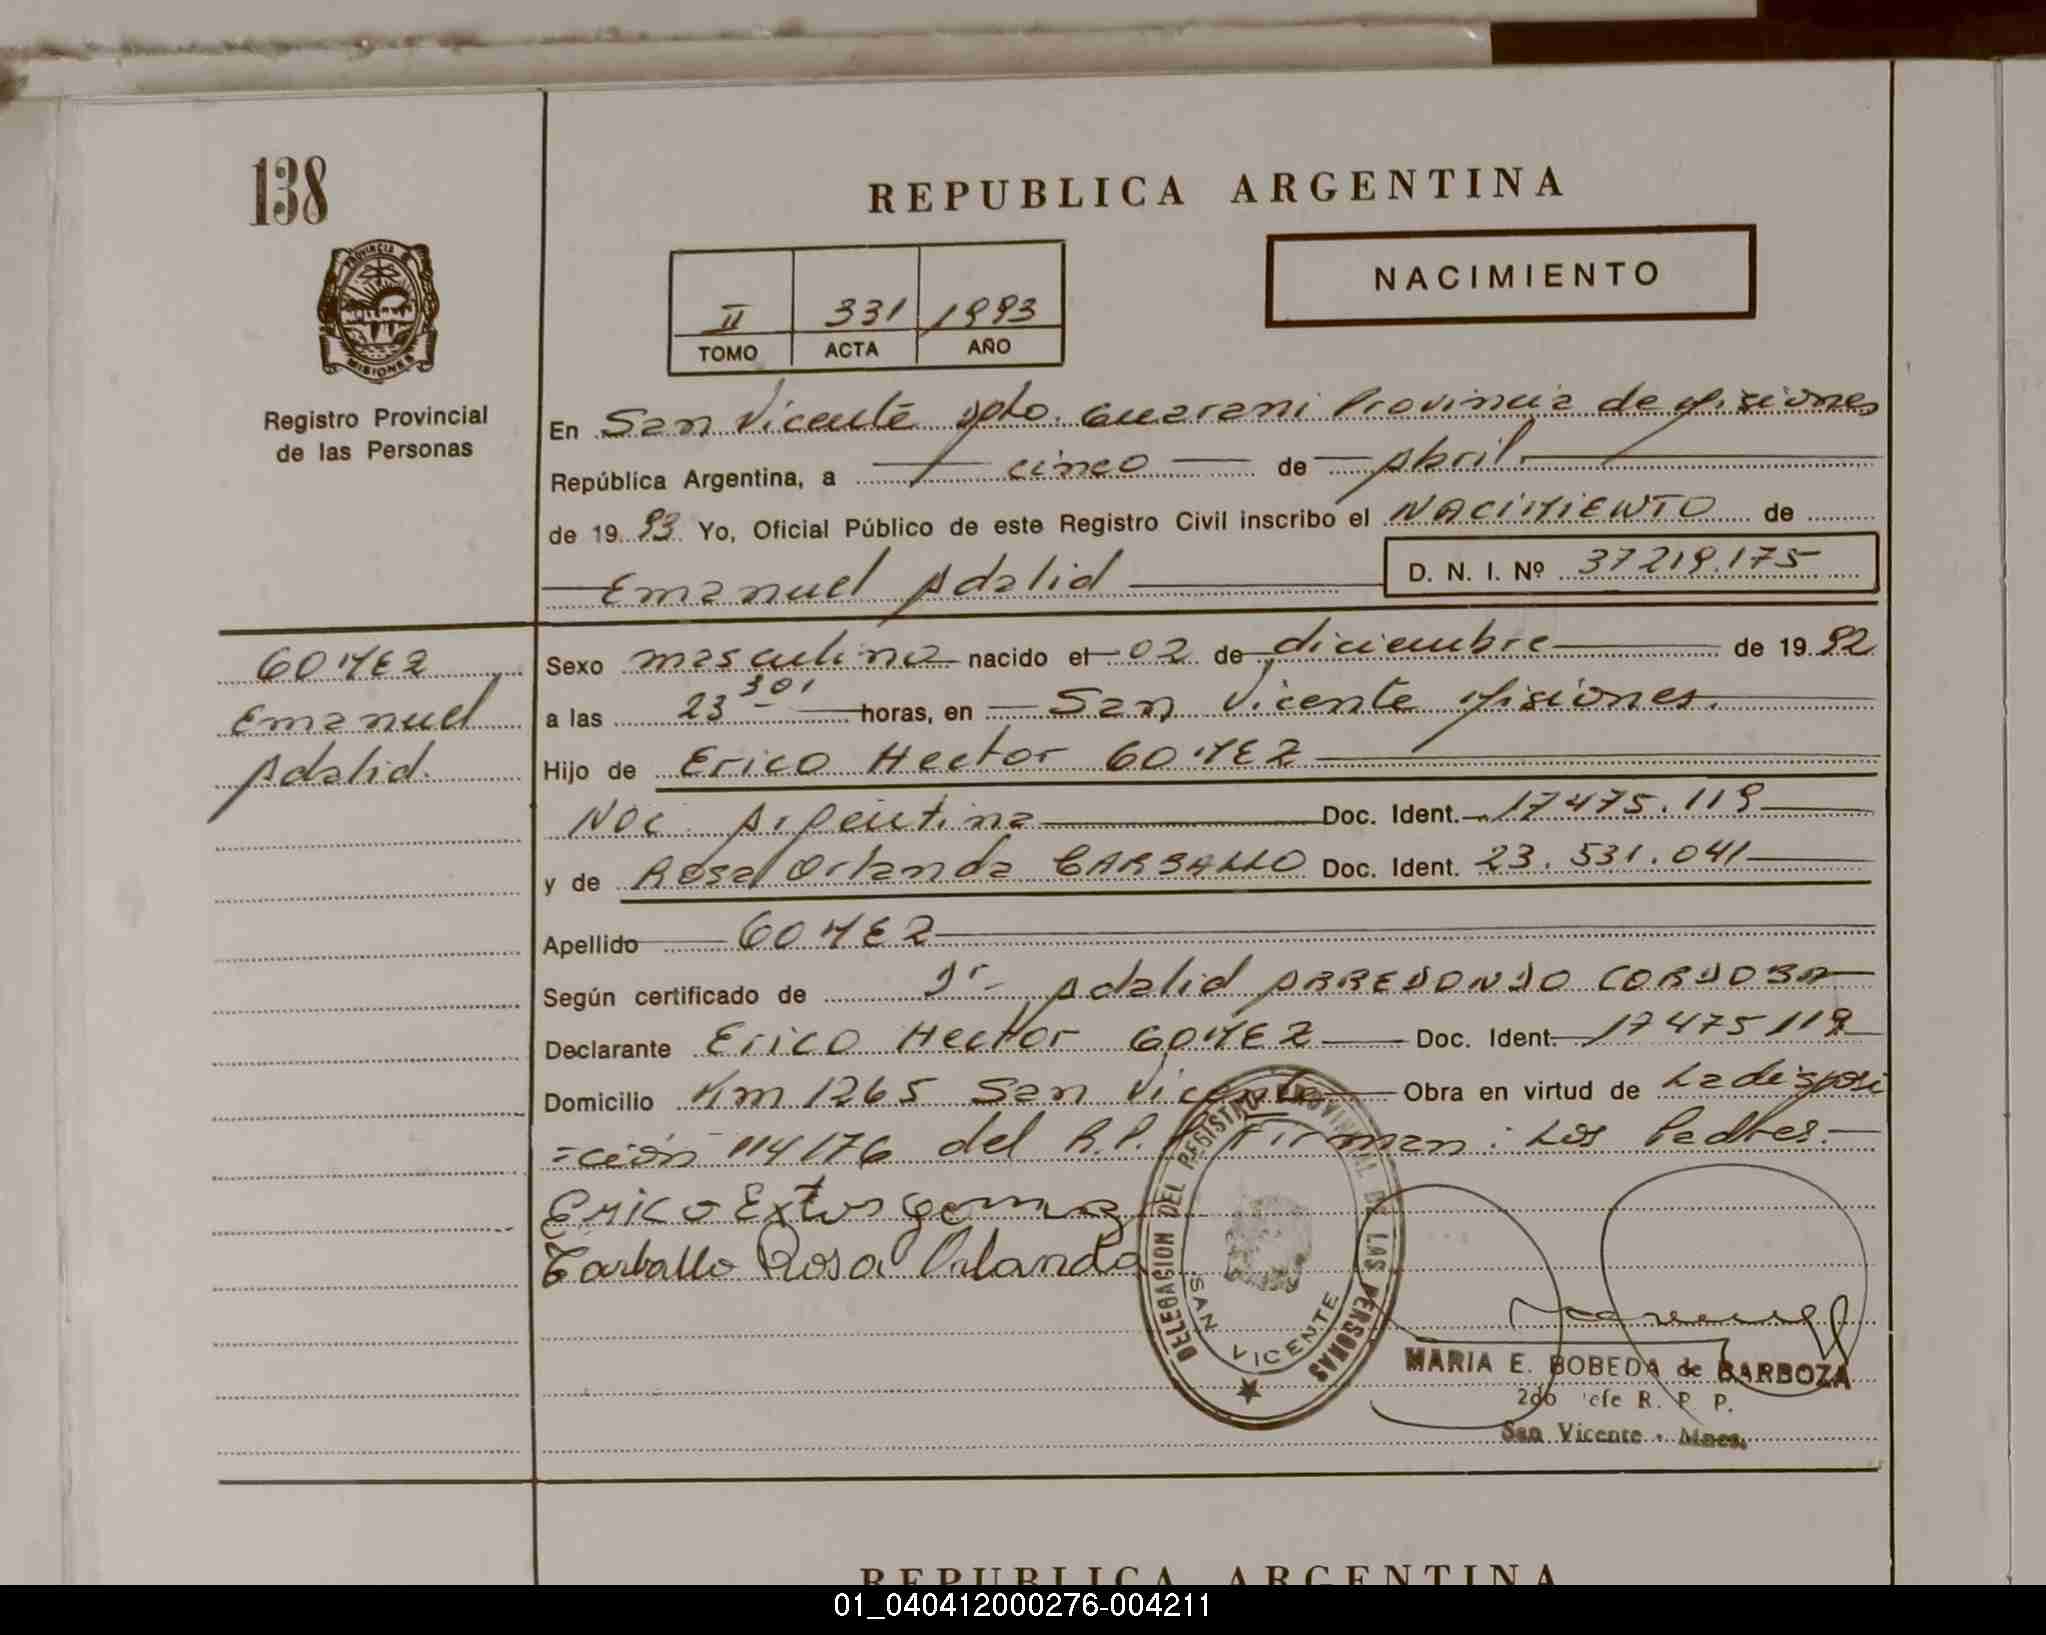 138
REPUBLICA ARGENTINA
PROVINCIA DE
MISIONES
Registro Provincial
de las Personas
NACIMIENTO
II 331 1993
TOMO ACTA AÑO
En San Vicente dpto. Guarani Provincia de Misiones
República Argentina, a cinco de Abril.
de 19 93 Yo, Oficial Público de este Registro Civil inscribo el NACIMIENTO de
Emanuel Adalid D. N. I. Nº 37219.175
GOMEZ
Emanuel
Adalid.
Sexo masculino nacido el 02 de diciembre de 19 92
a las 23 30' horas, en San Vicente Misiones.
Hijo de Erico Hector GOMEZ
Nac. Argentina Doc. Ident. 17475.119
y de Rosa Orlanda CARBALLO Doc. Ident. 23.531.041
Apellido GOMEZ
Según certificado de Dr Adalid ARREDONDO CORDOBA
Declarante Erico Hector GOMEZ Doc. Ident. 17475119
Domicilio Km 1265 San Vicente Obra en virtud de La disposi
=ción 114/76 del R.P.P. Firman: Los Padres.
Erico Extor gomez
Carballo Rosa Orlanda
DELEGACION DEL REGISTRO PROVINCIAL DE LAS PERSONAS
SAN VICENTE
MARIA E. BOBEDA de BARBOZA
2do Jefe R. P. P.
San Vicente - Mnes.
REPUBLICA ARGENTINA
01_040412000276-004211